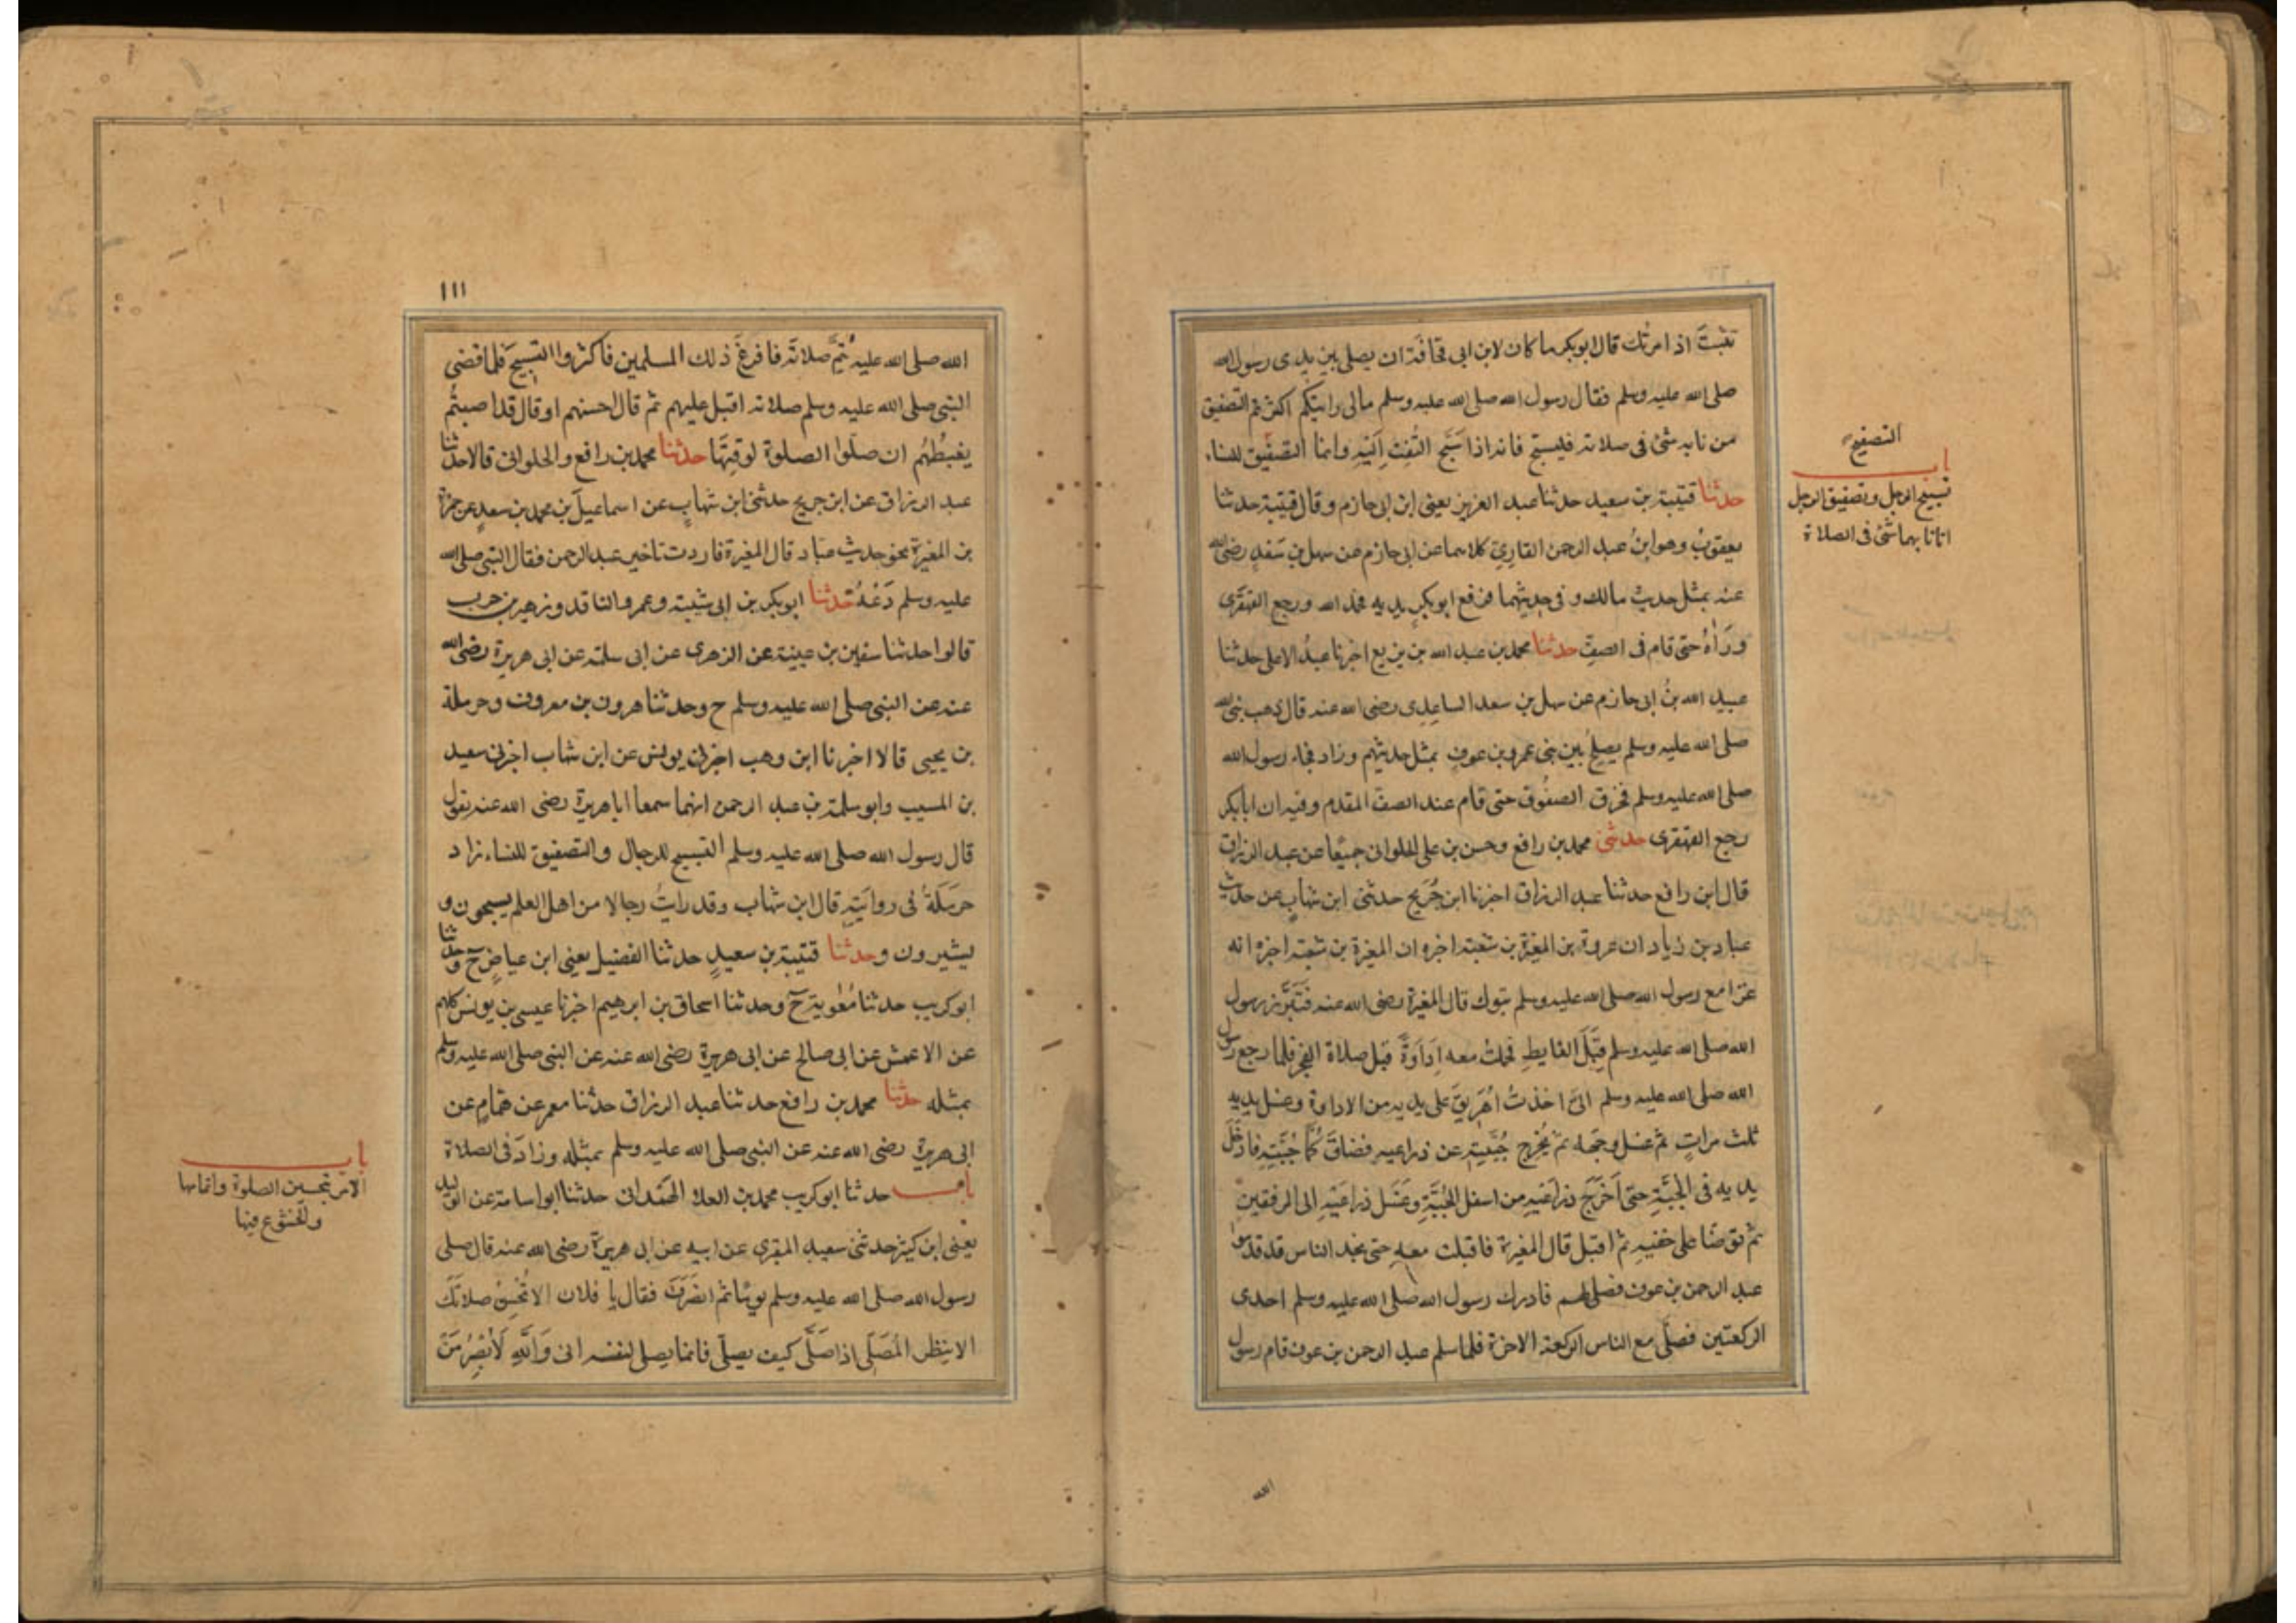 تثبت اذ امرتك قال ابوبكر ما كان لابن ابى قحافة ان يصلى بين يدى رسول الله
صلى الله عليه وسلم فقال رسول الله صلى الله عليه وسلم مالى رايتكم اكثرتم التصفيق
من نابه شئ فى صلاته فليسبح فانه اذا سَبَّح التُفِت اِلَيْهِ وانما التصفيق للنساء
حدثنا قتيبة بن سعيد حدثنا عبد العزيز يعنى ابن ابى حازم وقال قتيبة حدثنا
يعقوب وهو ابن عبد الرحمن القارى كلاهما عن ابى حازم عن سهل بن سَعْدٍ رضى الله
عنه بمثل حديث مالك و فى حديثهما فرفع ابوبكر يديه فحمد الله ورجع القهقرى
ورَاٰهُ حتى قام فى الصف حدثنا محمد بن عبد الله بن بزيع اخبرنا عبد الاعلى حدثنا
عبيد الله بن ابى حازم عن سهل بن سعد الساعدى رضى الله عنه قال ذهب نبى الله
صلى الله عليه وسلم يصلح بين بنى عمرو بن عوف بمثل حديثهم وزاد فجاء رسول الله
صلى الله عليه وسلم فخرق الصفُوف حتى قام عند الصف المقدم وفيه ان ابابكر
رجع القهقرى حدثنى محمد بن رافع وحسن بن على الحلوانى جميعًا عن عبد الرزاق
قال ابن رافع حدثنا عبد الرزاق اخبرنا ابن جُرَيج حدثنى ابن شهاب عن حديث
عباد بن زياد ان عروة بن المغيرة بن شعبة اخبره ان المغيرة بن شعبة اخبره انه
غزا مع رسول الله صلى الله عليه وسلم تبوك قال المغيرة رضى الله عنه فتَبَرَّز رسول
الله صلى الله عليه وسلم قِبَلَ الغايط فحملت معه اِدَاوَةً قبل صلاة الفجر فلما رجع رسول
الله صلى الله عليه وسلم الىَّ اخذتُ اُهَرِيقُ على يديه من الاداوة وغسل يديه
ثلث مراتٍ ثم غسل وجهه ثم يُخرج جُبَّتِه عن ذراعيه فضاقَ كُمَّا جُبَّتِهِ فادْخَلَ
يديه فى الجُبَّةِ حتى اَخْرَجَ ذراعَيْهِ من اسفل الجُبَّةِ وغَسَل ذراعَيْهِ الى المرفقينِ
ثم توضا على خفيه ثم اقبل قال المغيرة فاقبلت معه حتى نجد الناس قد قدموا
عبد الرحمن بن عوف فصلى لهم فادرك رسول الله صلى الله عليه وسلم احدى
الركعتين فصلى مع الناس الركعة الاخرة فلما سلم عبد الرحمن بن عوف قام رسول
الله
التصفيح
باب
تسبيح الرجل وتصفيق الرجل
اذا نابهما شئ فى الصلاة
١١١
الله صلى الله عليه يُتِمُّ صلاتَه فافزعَ ذلك المسلمين فاكثروا التسبيحَ فلما قضى
النبى صلى الله عليه وسلم صلاته اقبل عليهم ثم قال احسنتم او قال قد اصبتُم
يغبِطُهُم ان صلَّوا الصلوة لوقتِهَا حدثنا محمد بن رافع والحلوانى قالا حدثنا
عبد الرزاق عن ابن جريج حدثنى ابن شهاب عن اسماعيل بن محمد بن سعدٍ عن حمزة
بن المغيرة نحو حديث عباد قال المغيرة فاردت تاخير عبد الرحمن فقال النبى صلى الله
عليه وسلم دَعْهُ حدثنا ابوبكر بن ابى شيبة وعمرو الناقد وزهير بن حرب
قالوا حدثنا سفين بن عيينة عن الزهرى عن ابى سلمة عن ابى هريرة رضى الله
عنه عن النبى صلى الله عليه وسلم ح وحدثنا هرون بن معروف وحرملة
بن يحيى قالا اخبرنا ابن وهب اخبرنى يونس عن ابن شهاب اخبرنى سعيد
بن المسيب وابو سلمة بن عبد الرحمن انهما سمعا اباهريرة رضى الله عنه يقول
قال رسول الله صلى الله عليه وسلم التسبيح للرجال والتصفيق للنساء زاد
حَرمَلَةُ فى روايَتِه قال ابن شهاب وقد رايتُ رجالا من اهل العلم يسبحون و
يشيرون وحدثنا قتيبة بن سعيدٍ حدثنا الفضيل يعنى ابن عياضٍ ح وحدثنا
ابوكريب حدثنا مُعٰوية ح وحدثنا اسحاق بن ابرهيم اخبرنا عيسى بن يونس كلهم
عن الاعمش عن ابى صالح عن ابى هريرة رضى الله عنه عن النبى صلى الله عليه وسلم
بمثله حدثنا محمد بن رافع حدثنا عبد الرزاق حدثنا معمر عن همامٍ عن
ابى هريرة رضى الله عنه عن النبى صلى الله عليه وسلم بمثله وزادَ فى الصلاة
باب حدثنا ابوكريب محمد بن العلا الهمدانى حدثنا ابو اسامة عن الوليد
يعنى ابن كثير حدثنى سعيد المقبرى عن ابيه عن ابى هريرةَ رضى الله عنه قال صلى
رسول الله صلى الله عليه وسلم يومًا ثم انصَرَف فقال يا فلان الا تُحْسِنُ صلاتَكَ
الا ينظر المُصَلِّى اذا صَلَّى كيف يصلى فانما يصلى لنفسه انى وَاللّٰهِ لَأُبْصِرُ مَنْ
باب
الامر بتحسين الصلوة واتمامها
والخشوع فيها